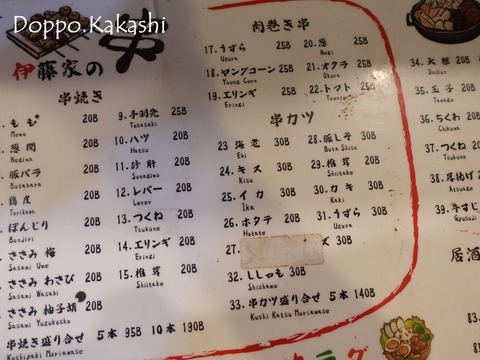 Doppo.Kakashi
伊藤家の 串
串焼き
もも 20B
Momo
葱間 20B
Negima
豚バラ 20B
Butabara
鶏皮 20B
Torikawa
ぼんじり 20B
Bonjiri
ささみ 梅 20B
Sasami Ume
ささみ わさび 20B
Sasami Wasabi
ささみ 柚子胡 20B
Sasami Yuzukosho
9. 手羽先 25B
Tebasaki
10. ハツ 20B
Hatsu
11. 砂肝 20B
Sunagimo
12. レバー 20B
Lever
13. つくね 20B
Tsukune
14. エリンギ 20B
Eringi
15. 椎茸 20B
Shiitake
串焼き盛り合せ 5本 95B 10本 190B
Kushiyaki Moriawase
肉巻き串
17. うずら 25B
Uzura
18. ヤングコーン 25B
Young Corn
19. エリンギ 25B
Eringi
20. 葱 25B
Negi
21. オクラ 25B
Okura
22. トマト 25B
Tomato
串カツ
23 海老 30B
Ebi
24. キス 30B
Kisu
25. イカ 30B
Ika
26. ホタテ 20B
Hotate
27.
ズ 30B
28. 豚しそ 30B
Buta Shiso
29. 椎茸 20B
Shiitake
30. カキ 30B
Kaki
31. うずら 30B
Uzura
32. ししゃも 30B
Shishamo
33. 串カツ盛り合せ 5本 140B
Kushi Katsu Moriawase
34. 大根 20B
Daikon
35. 玉子
Tamago
36. ちくわ
Chikuwa
37. つくね
Tsukune
38. 厚揚げ
Atsuage
39. 牛すじ
Gyusuji
居酒
83.
84
85